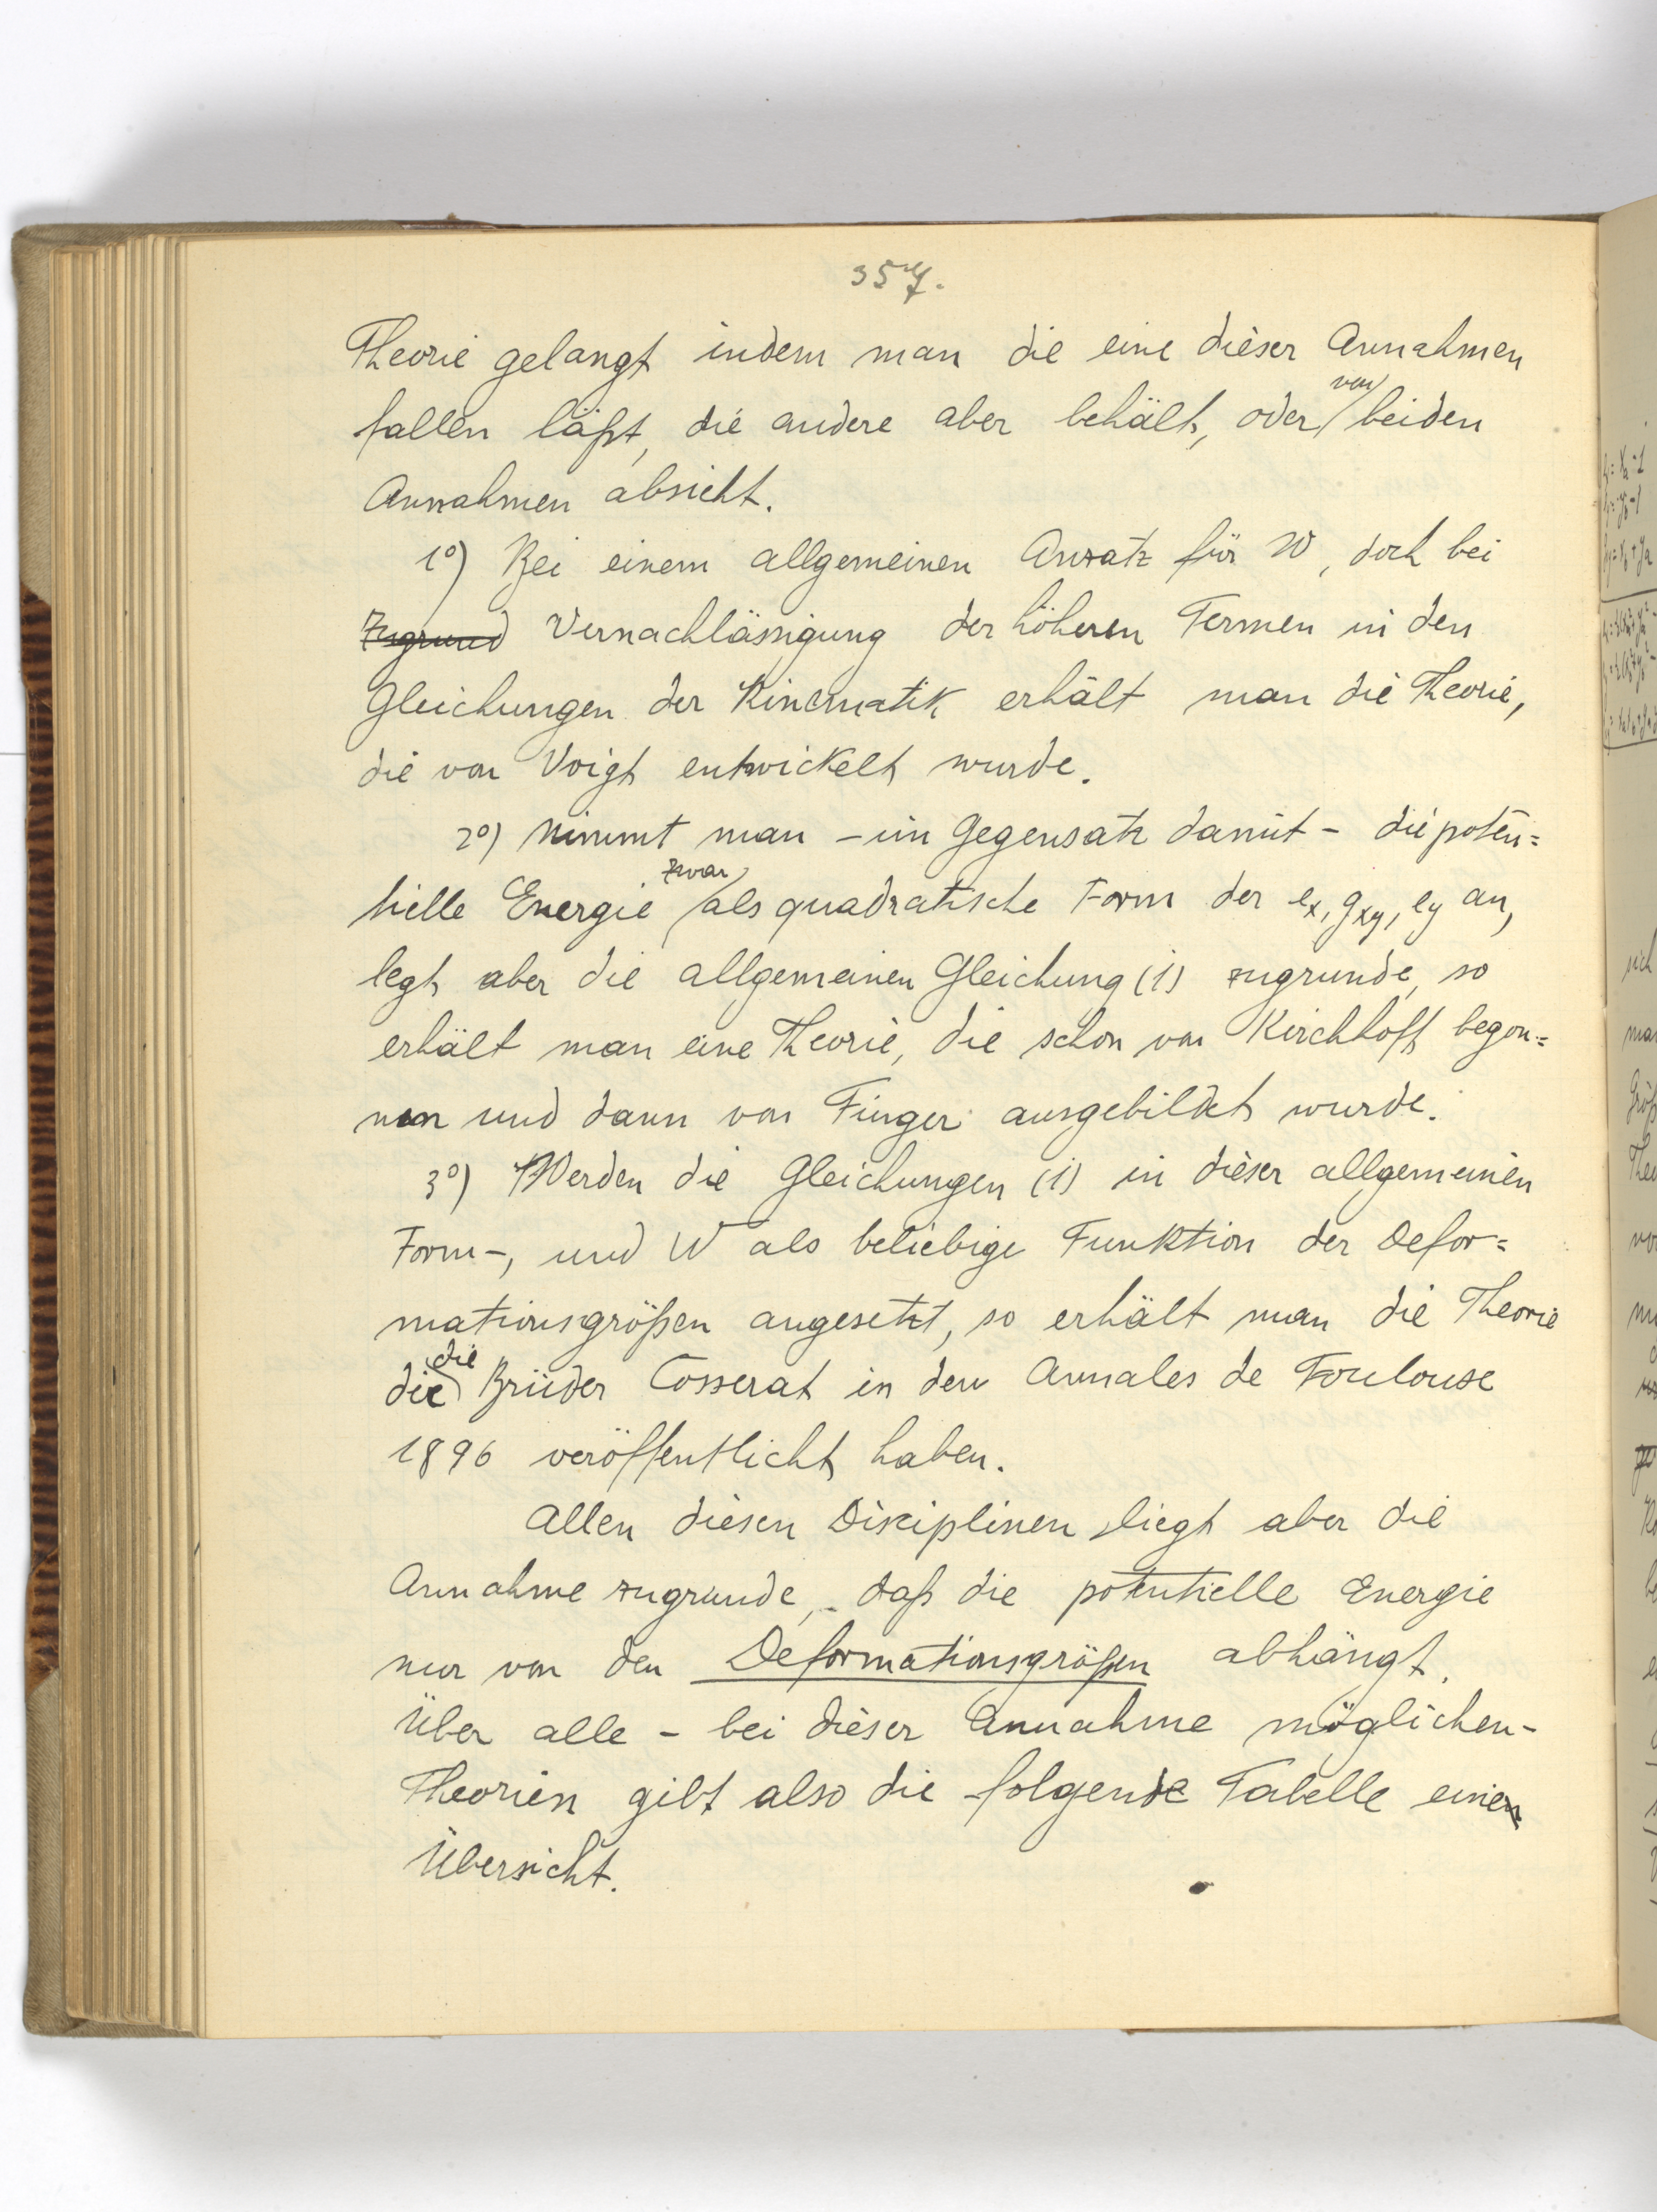 357.
Theorie gelangt indem man die eine dieser Annahmen
fallen läßt, die andere aber behält, oder von beiden
Annahmen absieht.
1°) Bei einem allgemeinen Ansatz für W, doch bei
Zugrund Vernachlässigung der höheren Termen in den
Gleichungen der Kinematik erhält man die Theorie,
die von Voigt entwickelt wurde.
2°) Nimmt man – im Gegensatz damit – die poten=
tielle Energie zwar als quadratische Form der ex, gxy, ey an,
legt aber die allgemeinen Gleichung (1) zugrunde, so
erhält man eine Theorie, die schon von Kirchhoff begon=
nen und dann von Finger ausgebildet wurde.
3°) Werden die Gleichungen (1) in dieser allgemeinen
Form –, und W als beliebige Funktion der Defor=
mationsgrößen angesetzt, so erhält man die Theorie
die die Brüder Cosserat in den Annales de Toulouse
1896 veröffentlicht haben.
Allen diesen Disciplinen liegt aber die
Annahme zugrunde, daß die potentielle Energie
nur von den Deformationsgrößen abhängt.
Über alle – bei dieser Annahme möglichen –
Theorien gibt also die folgende Tabelle eine
Übersicht.